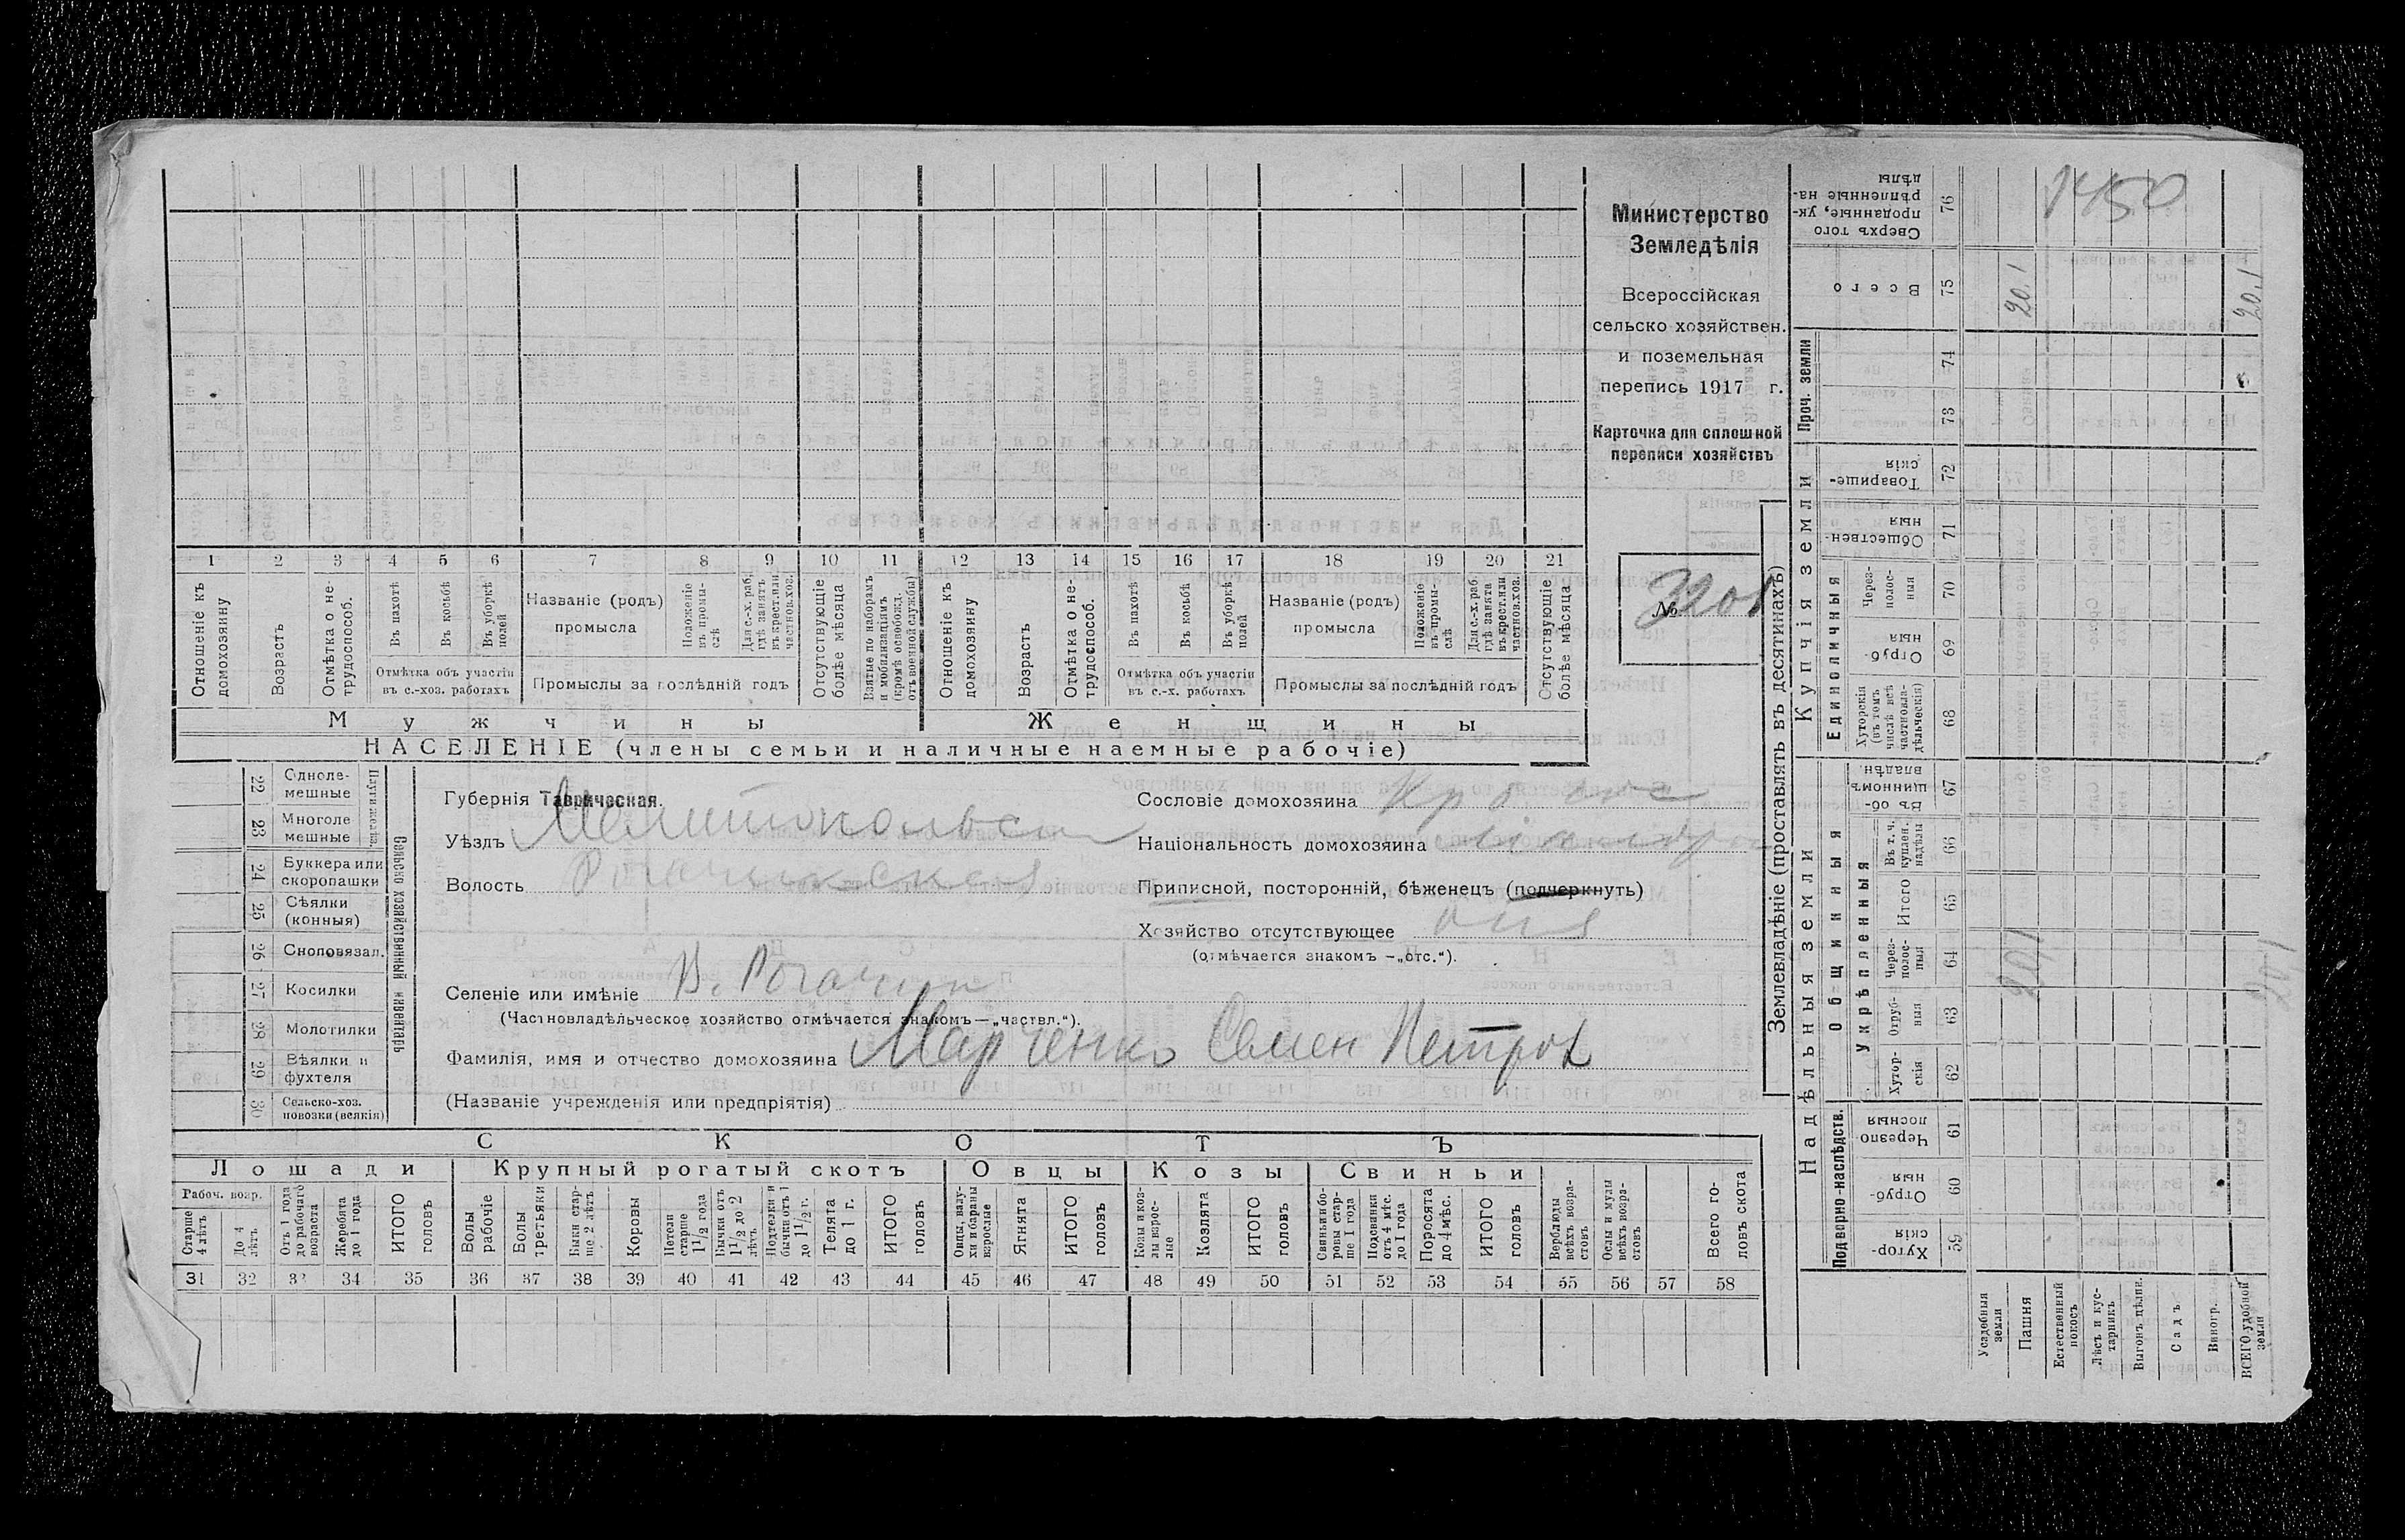 Министерство
Земледѣлія
Всероссійская
сельско хозяйствен.
и поземельная
перепись 1917 г.
Карточка для сплошной
переписи хозяйствъ
№ 3201
1 2 3 4 5 6 7 8 9 10 11 12 13 14 15 16 17 18 19 20 21
Отношеніе къ домохозяину
Возрастъ
Отмѣтка о не-трудоспособ.
Въ пахотѣ
Въ косьбѣ
Въ уборкѣ полей
Отмѣтка объ участіи въ с.-хоз. работахъ
Названіе (родъ) промысла
Положеніе въ промы-слѣ
Для с.-х. раб. гдѣ занятъ въ крест. или частнов. хоз.
Промыслы за послѣдній годъ
Отсутствующіе болѣе мѣсяца
Взятые по наборамъ и мобилизаціямъ (кромѣ освобожд. отъ военной службы)
Отношеніе къ домохозяину
Возрастъ
Отмѣтка о не-трудоспособ.
Въ пахотѣ
Въ косьбѣ
Въ уборкѣ полей
Отмѣтка объ участіи въ с.-х. работахъ
Названіе (родъ) промысла
Положеніе въ промы-слѣ
Для с.-х. раб. гдѣ занята въ крест. или частнов. хоз.
Промыслы за послѣдній годъ
Отсутствующіе болѣе мѣсяца
Мужчины
Женщины
НАСЕЛЕНІЕ (члены семьи и наличные наемные рабочіе)
Сельско хозяйственный инвентарь
22 Одноле-мешные
23 Многоле мешные
24 Буккера или скоропашки
25 Сѣялки (конныя)
26 Сноповязал.
27 Косилки
28 Молотилки
29 Вѣялки и фухтеля
30 Сельско-хоз. повозки (всякія)
Губернія Таврическая.
Уѣздъ Мелитопольск
Волость Рогачикская
Селеніе или имѣніе В. Рогачик
(Частновладѣльческое хозяйство отмѣчается знакомъ — „частвл.“).
Фамилія, имя и отчество домохозяина Марченко Семен Петров
(Названіе учрежденія или предпріятія)
Сословіе домохозяина
Національность домохозяина
Приписной, посторонній, бѣженецъ (подчеркнуть)
Хозяйство отсутствующее
(отмѣчается знакомъ — „отс.“).
СКОТЪ
Лошади
Крупный рогатый скотъ
Овцы
Козы
Свиньи
Рабоч. возр.
Старше 4 лѣтъ
До 4 лѣтъ.
Отъ 1 года до рабочаго возраста
Жеребята до 1 года
ИТОГО головъ
Волы рабочіе
Волы третьяки
Быки стар-ше 2 лѣтъ
Коровы
Нетели старше 1 1/2 года
Бычки отъ 1 1/2 до 2 лѣтъ
Подтелки и бычки отъ 1 до 1 1/2 г.
Телята до 1 г.
ИТОГО головъ
Овцы, валу-хи и бараны взрослые
Ягнята
ИТОГО головъ
Козы и коз-лы взрос-лые
Козлята
ИТОГО головъ
Свиньи и бо-ровы стар-ше 1 года
Подсвинки отъ 4 мѣс. до 1 года
Поросята до 4 мѣс.
ИТОГО головъ
Верблюды всѣхъ возра-стовъ
Ослы и мулы всѣхъ возра-стовъ
Всего го-ловъ скота
31 32 33 34 35 36 37 38 39 40 41 42 43 44 45 46 47 48 49 50 51 52 53 54 55 56 57 58
Землевладѣніе (проставлять въ десятинахъ)
Купчія земли
Проч. земли
Единоличныя
Надѣльныя земли
Общинныя
Укрѣпленныя
Подворно-наслѣдств.
76 Сверхъ того проданные, ук-рѣпленные на-дѣлы
75 Всего
74
73
72 Товарище-скія
71 Обществен-ныя
70 Через-полос-ныя
69 Отруб-ныя
68 Хуторскія (въ томъ числѣ всѣ частновла-дѣльческія)
67 Въ об-щинномъ владѣн.
66 Въ т. ч. куплен. надѣлы
65 Итого
64 Через-полос-ныя
63 Отруб-ныя
62 Хутор-скія
61 Черезпо лосныя
60 Отруб-ныя
59 Хутор-скія
Усадебныя земли
Пашня
Естественный покосъ
Лѣсъ и кус-тарникъ
Выгонъ, цѣлин.
Садъ
Виногр.
ВСЕГО удобной земли
1450
20,1
20,1
20,1
20,1